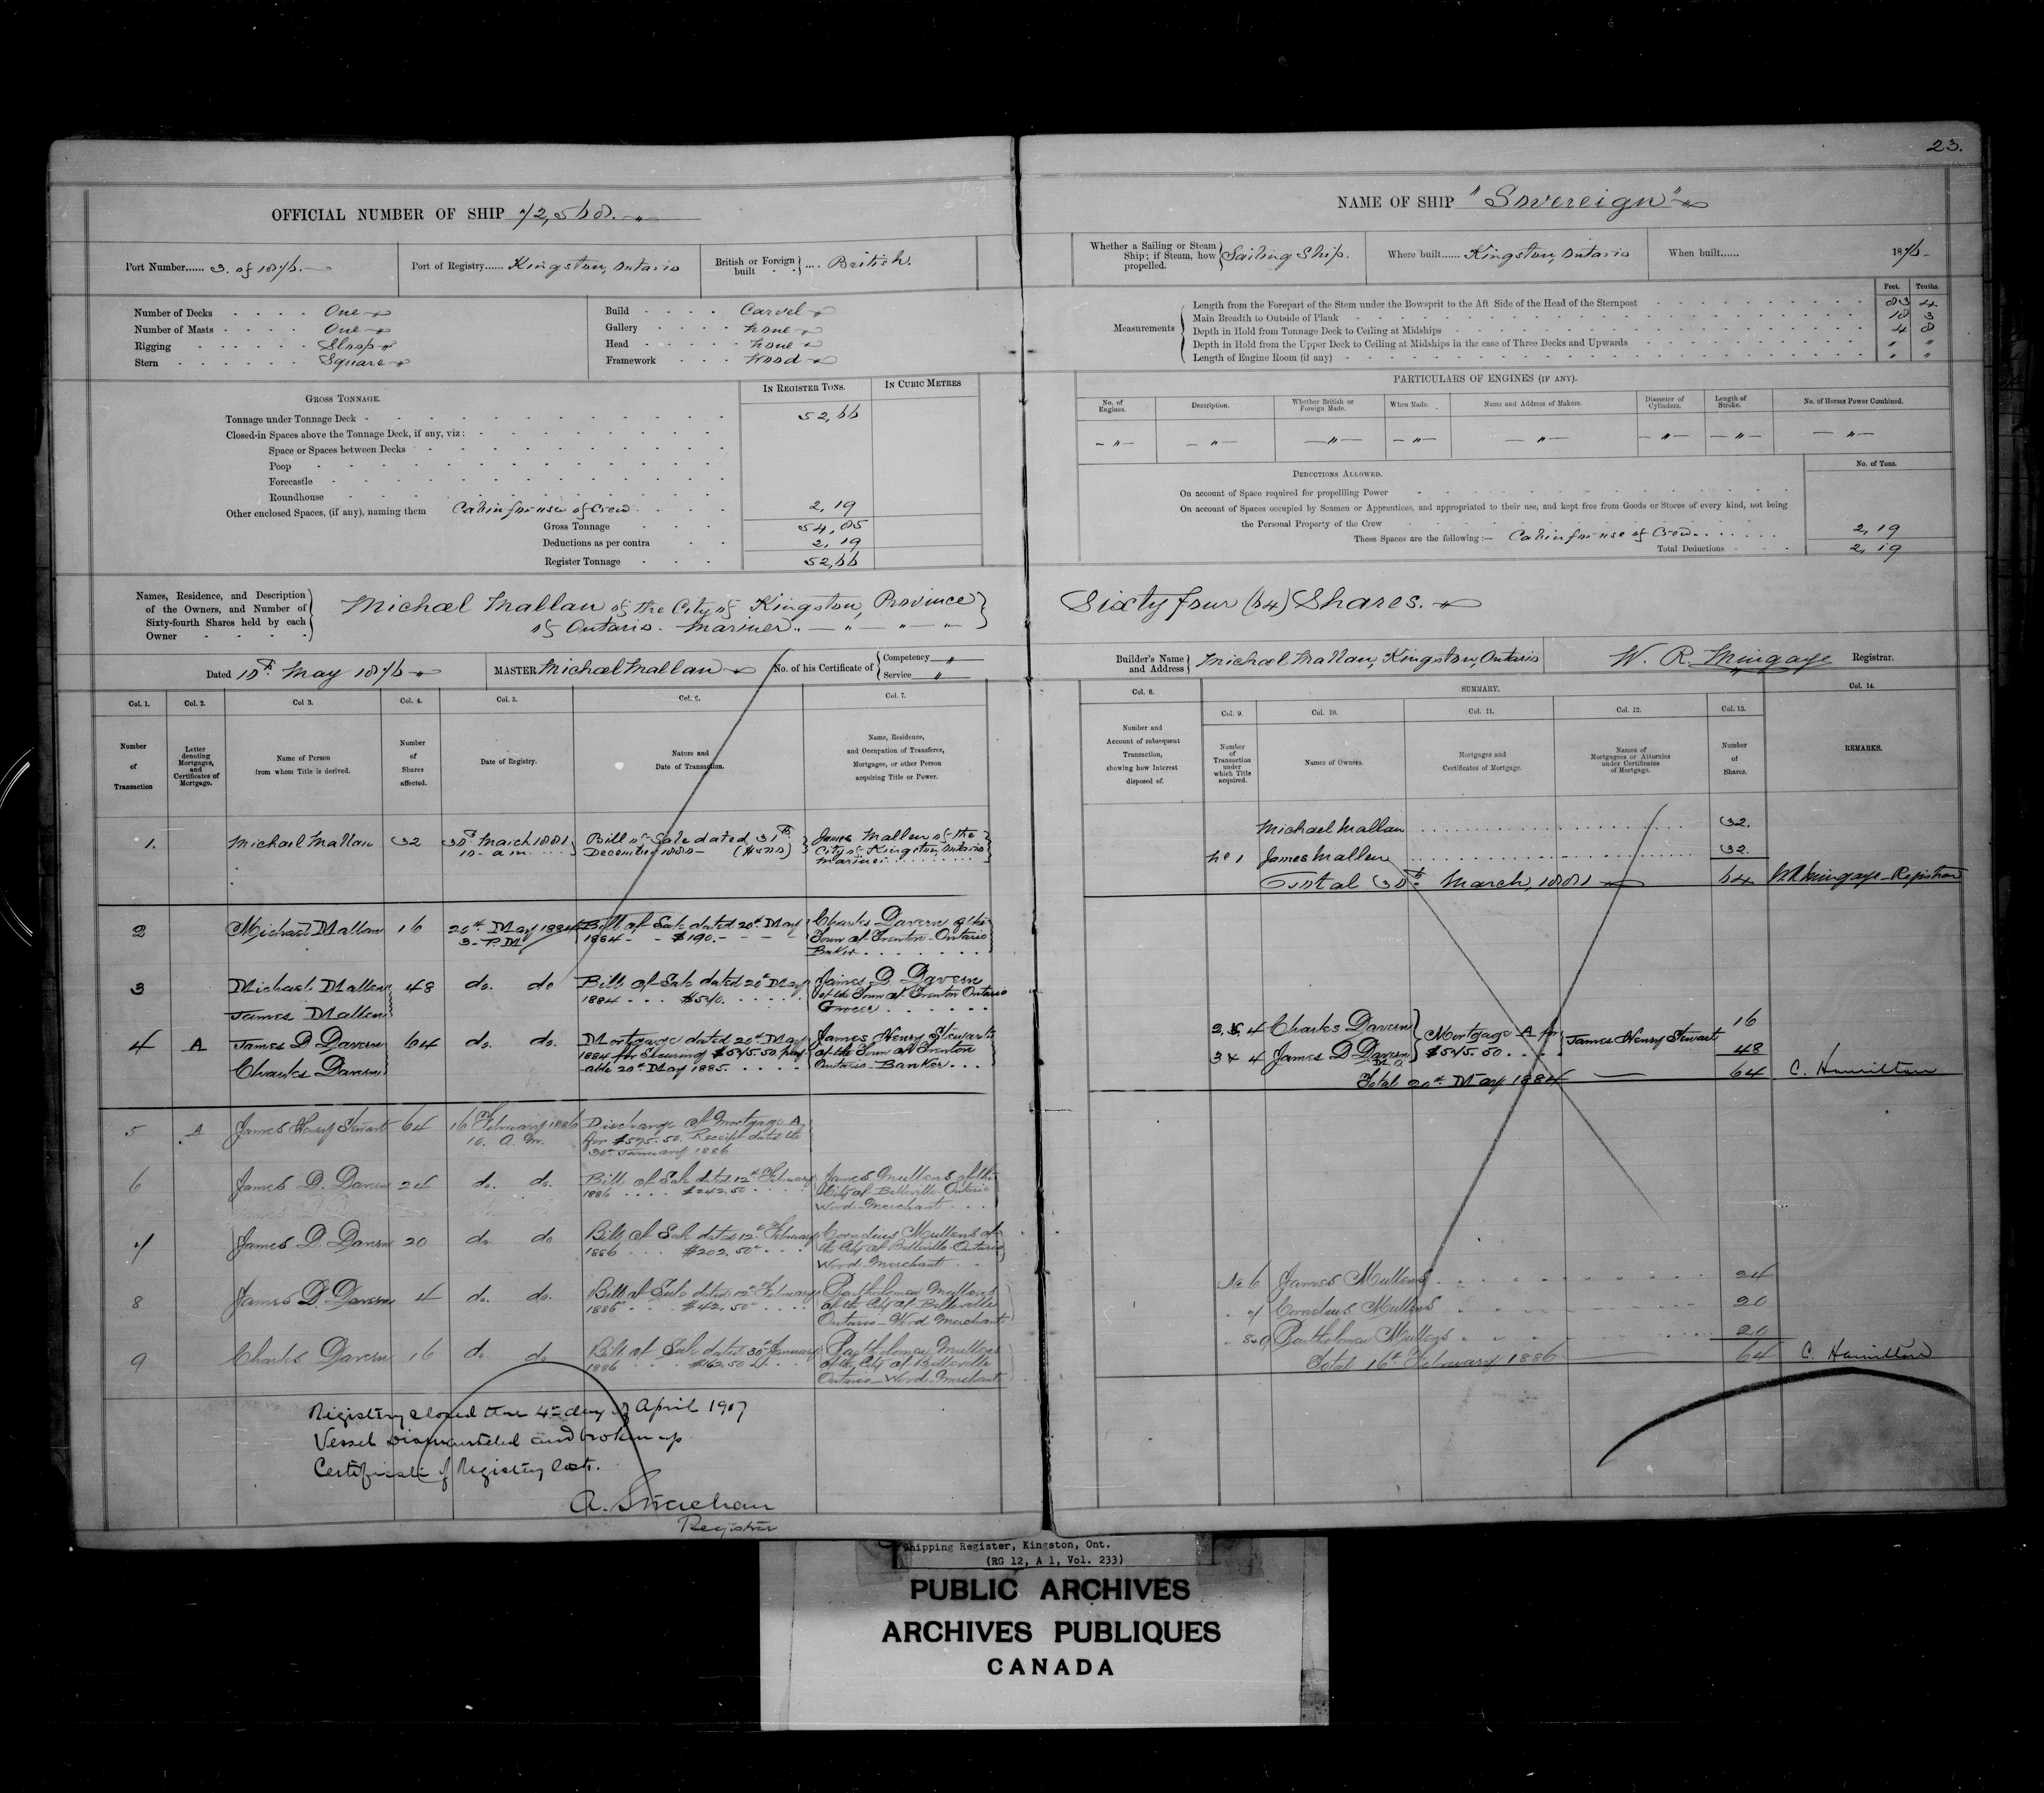 23.
OFFICIAL NUMBER OF SHIP 72,568.
NAME OF SHIP "Sovereign"
Port Number...... 3. of 1876.
Port of Registry...... Kingston, Ontario
British or Foreign built .... British.
Whether a Sailing or Steam Ship; if Steam, how propelled. Sailing Ship.
Where built...... Kingston, Ontario
When built...... 1876
Number of Decks One
Number of Masts One
Rigging Sloop
Stern Square
Build Carvel
Gallery None
Head None
Framework Wood
Measurements
Feet. Tenths.
Length from the Forepart of the Stem under the Bowsprit to the Aft Side of the Head of the Sternpost 83 4
Main Breadth to Outside of Plank 18 3
Depth in Hold from Tonnage Deck to Ceiling at Midships 4 8
Depth in Hold from the Upper Deck to Ceiling at Midships in the case of Three Decks and Upwards " "
Length of Engine Room (if any) " "
GROSS TONNAGE.
IN REGISTER TONS.
IN CUBIC METRES
Tonnage under Tonnage Deck 52,66
Closed-in Spaces above the Tonnage Deck, if any, viz:
Space or Spaces between Decks
Poop
Forecastle
Roundhouse
Other enclosed Spaces, (if any), naming them Cabin for use of Crew 2,19
Gross Tonnage 54,85
Deductions as per contra 2,19
Register Tonnage 52,66
PARTICULARS OF ENGINES (IF ANY).
No. of Engines.
Description.
Whether British or Foreign Made.
When Made.
Name and Address of Makers.
Diameter of Cylinders.
Length of Stroke.
No. of Horses Power Combined.
— " — — " — — " — — " — — " — — " — — " — — " —
DEDUCTIONS ALLOWED.
No. of Tons.
On account of Space required for propellling Power
On account of Spaces occupied by Seamen or Apprentices, and appropriated to their use, and kept free from Goods or Stores of every kind, not being
the Personal Property of the Crew
These Spaces are the following :— Cabin for use of Crew 2,19
Total Deductions 2,19
Names, Residence, and Description of the Owners, and Number of Sixty-fourth Shares held by each Owner
Michael Mallan of the City of Kingston, Province
of Ontario. Mariner. — " — " — "
Sixty four (64) Shares.
Dated 18th May 1876
MASTER Michael Mallan
No. of his Certificate of Competency " Service "
Builder's Name and Address Michael Mallan, Kingston, Ontario
W. R. Mingaye Registrar.
Col. 1. Col. 2. Col 3. Col. 4. Col. 5. Col. 6. Col. 7.
Number of Transaction
Letter denoting Mortgages, and Certificates of Mortgage.
Name of Person from whom Title is derived.
Number of Shares affected.
Date of Registry.
Nature and Date of Transaction.
Name, Residence, and Occupation of Transferee, Mortgagee, or other Person acquiring Title or Power.
1. Michael Mallan 32 30th March 1881 10- a.m. Bill of Sale dated 31st December 1880- ($400) James Mallen of the City of Kingston, Ontario Mariner
2 Michael Mallan 16 20th May 1884 3- P.M Bill of Sale dated 20th May 1884 - - $190.- Charles Davern of the Town of Trenton-Ontario Baker
3 Michael Mallen James Mallen 48 do. do Bill of Sale dated 20th May 1884 . . . James D. Davern of the Town of Trenton Ontario Grocer
4 A James D Davern Charles Davern 64 do. do. Mortgage dated 20th May 1884 for Securing $575.50 pay able 20th May 1885. James Henry Stewart of the Town of Trenton Ontario - Banker
5 A James Henry Stewart 64 16th February 1886 10. A.M. Discharge of Mortgage A for $575.50. Receipt dated the 30th January 1886
6 James D. Davern 24 do. do. Bill of Sale dated 12th February 1886 .... $242.50 James Mullens of the City of Belleville Ontario Wood-Merchant
7 James D. Davern 20 do. do Bill of Sale dated 12th February 1886 ... $202.50 Cornelius Mullens of the City of Belleville Ontario Wood Merchant
8 James D. Davern 4 do. do. Bill of Sale dated 12th February 1886 . . . $42.50 Bartholomew Mullens of the City of Belleville Ontario - Wood Merchant
9 Charles Davern 16 do. do Bill of Sale dated 30th January 1886 . . . $162.50 Bartholomew Mullens of the City of Belleville Ontario - Wood-Merchant
Registry closed this 4th day of April 1907
Vessel dismantled and broken up
Certificate of Registry lost.
A. Strachan
Registrar
Col. 8. SUMMARY. Col. 14.
Col. 9. Col. 10. Col. 11. Col. 12. Col. 13.
Number and Account of subsequent Transaction, showing how Interest disposed of.
Number of Transaction under which Title acquired.
Names of Owners.
Mortgages and Certificates of Mortgage.
Names of Mortgagees or Attornies under Certificates of Mortgage.
Number of Shares.
REMARKS.
Michael Mallan 32.
No 1 James Mallen 32.
Total 30th March, 1881 64 W.R. Mingaye-Registrar
2, & 4 Charles Davern Mortgage A for James Henry Stewart 16
3 & 4 James D Davern $575.50 48
Total 20th May 1884 — 64 C. Hamilton
No 6 James Mullens 24
" 7 Cornelius Mullens 20
" 8&9 Bartholomew Mullens 20
Total 16th February 1886 64 C. Hamilton
Shipping Register, Kingston, Ont.
(RG 12, A 1, Vol. 233)
PUBLIC ARCHIVES
ARCHIVES PUBLIQUES
CANADA